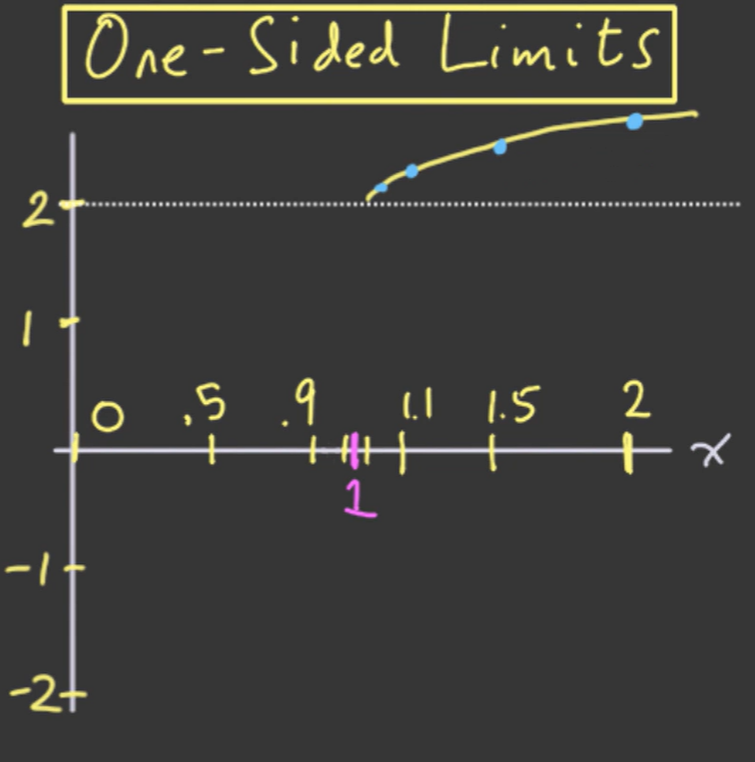 One-Sided Limits
2
1
0 .5 .9 1.1 1.5 2
x
1
-1
-2